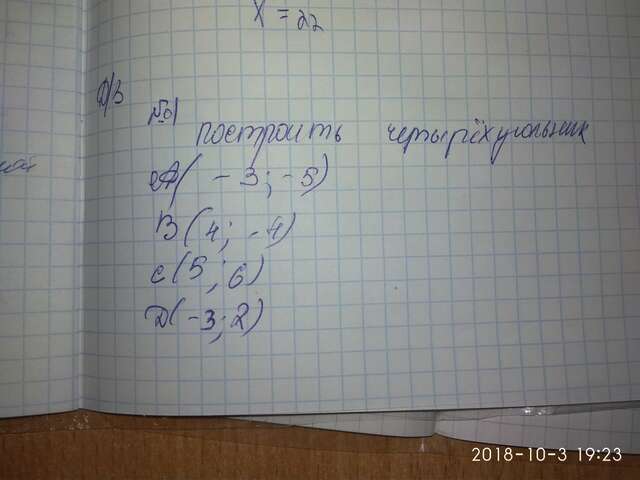 X = 22
Д/З
№1
построить четырёхугольник
A(-3; -5)
B(4; -4)
C(5; 6)
D(-3; 2)
2018-10-3 19:23